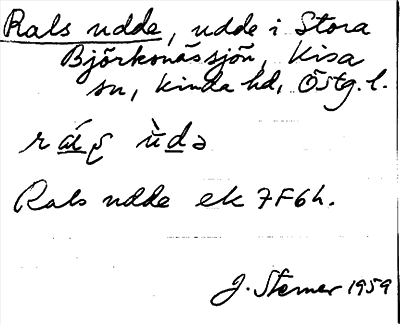 Rals udde, udde i Stora
Björkenässjön, Kisa
sn, Kinda hd, Östg. l.
Rals udde ek 7F6h.
J. Sterner 1959